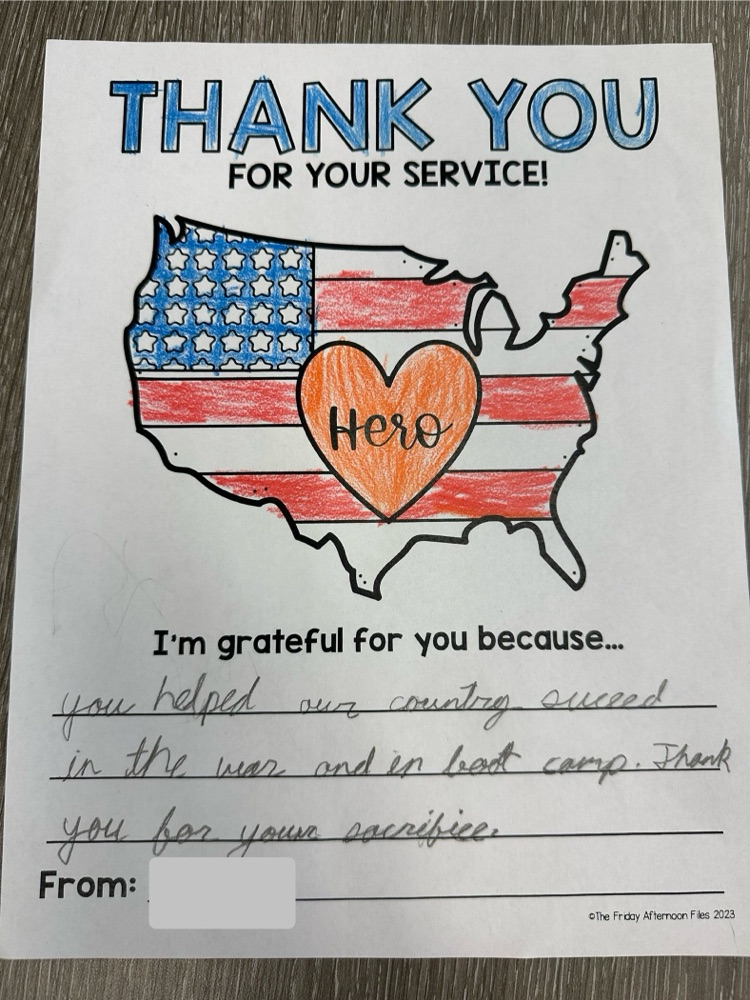 THANK YOU
FOR YOUR SERVICE!
Hero
I'm grateful for you because...
you helped our country suceed
in the war and in boot camp. Thank
you for your sacrifice.
From:
©The Friday Afternoon Files 2023